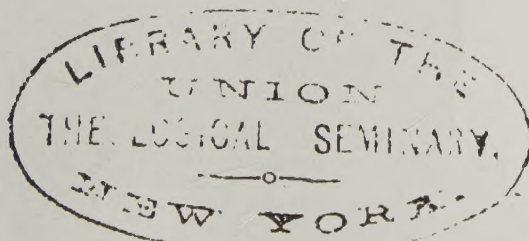 LIBRARY OF THE
UNION
THEOLOGICAL SEMINARY.
NEW YORK.